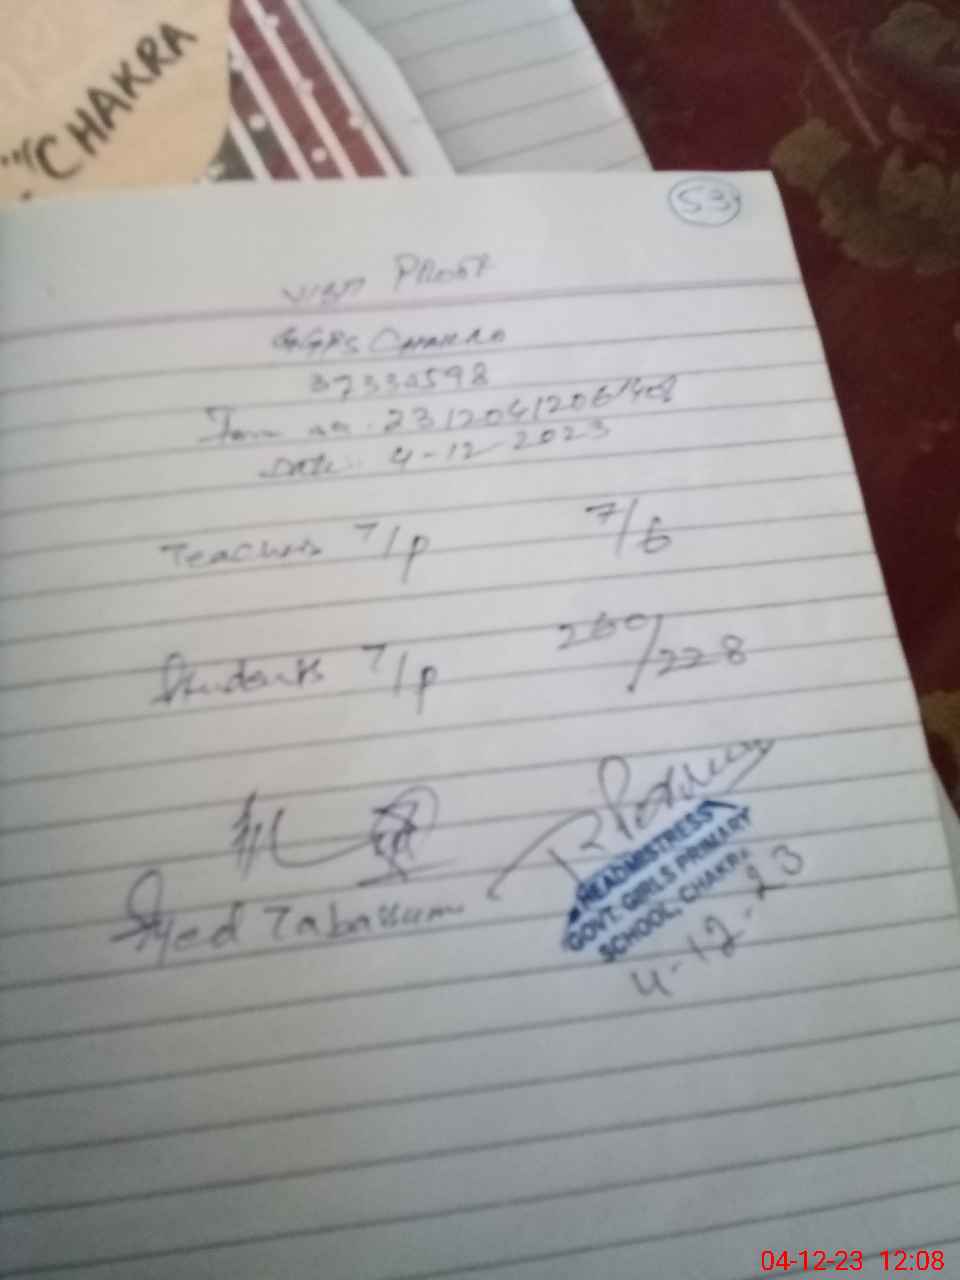 CHAKRA
53
Visit Proof
GGPS Chakra
37330598
Form no. 231204120614
Date: 4-12-2023
Teachers T/P 7/6
Students T/P 260/228
Syed Tabassum
HEADMISTRESS
GOVT. GIRLS PRIMARY
SCHOOL, CHAKRA
4-12-23
04-12-23 12:08